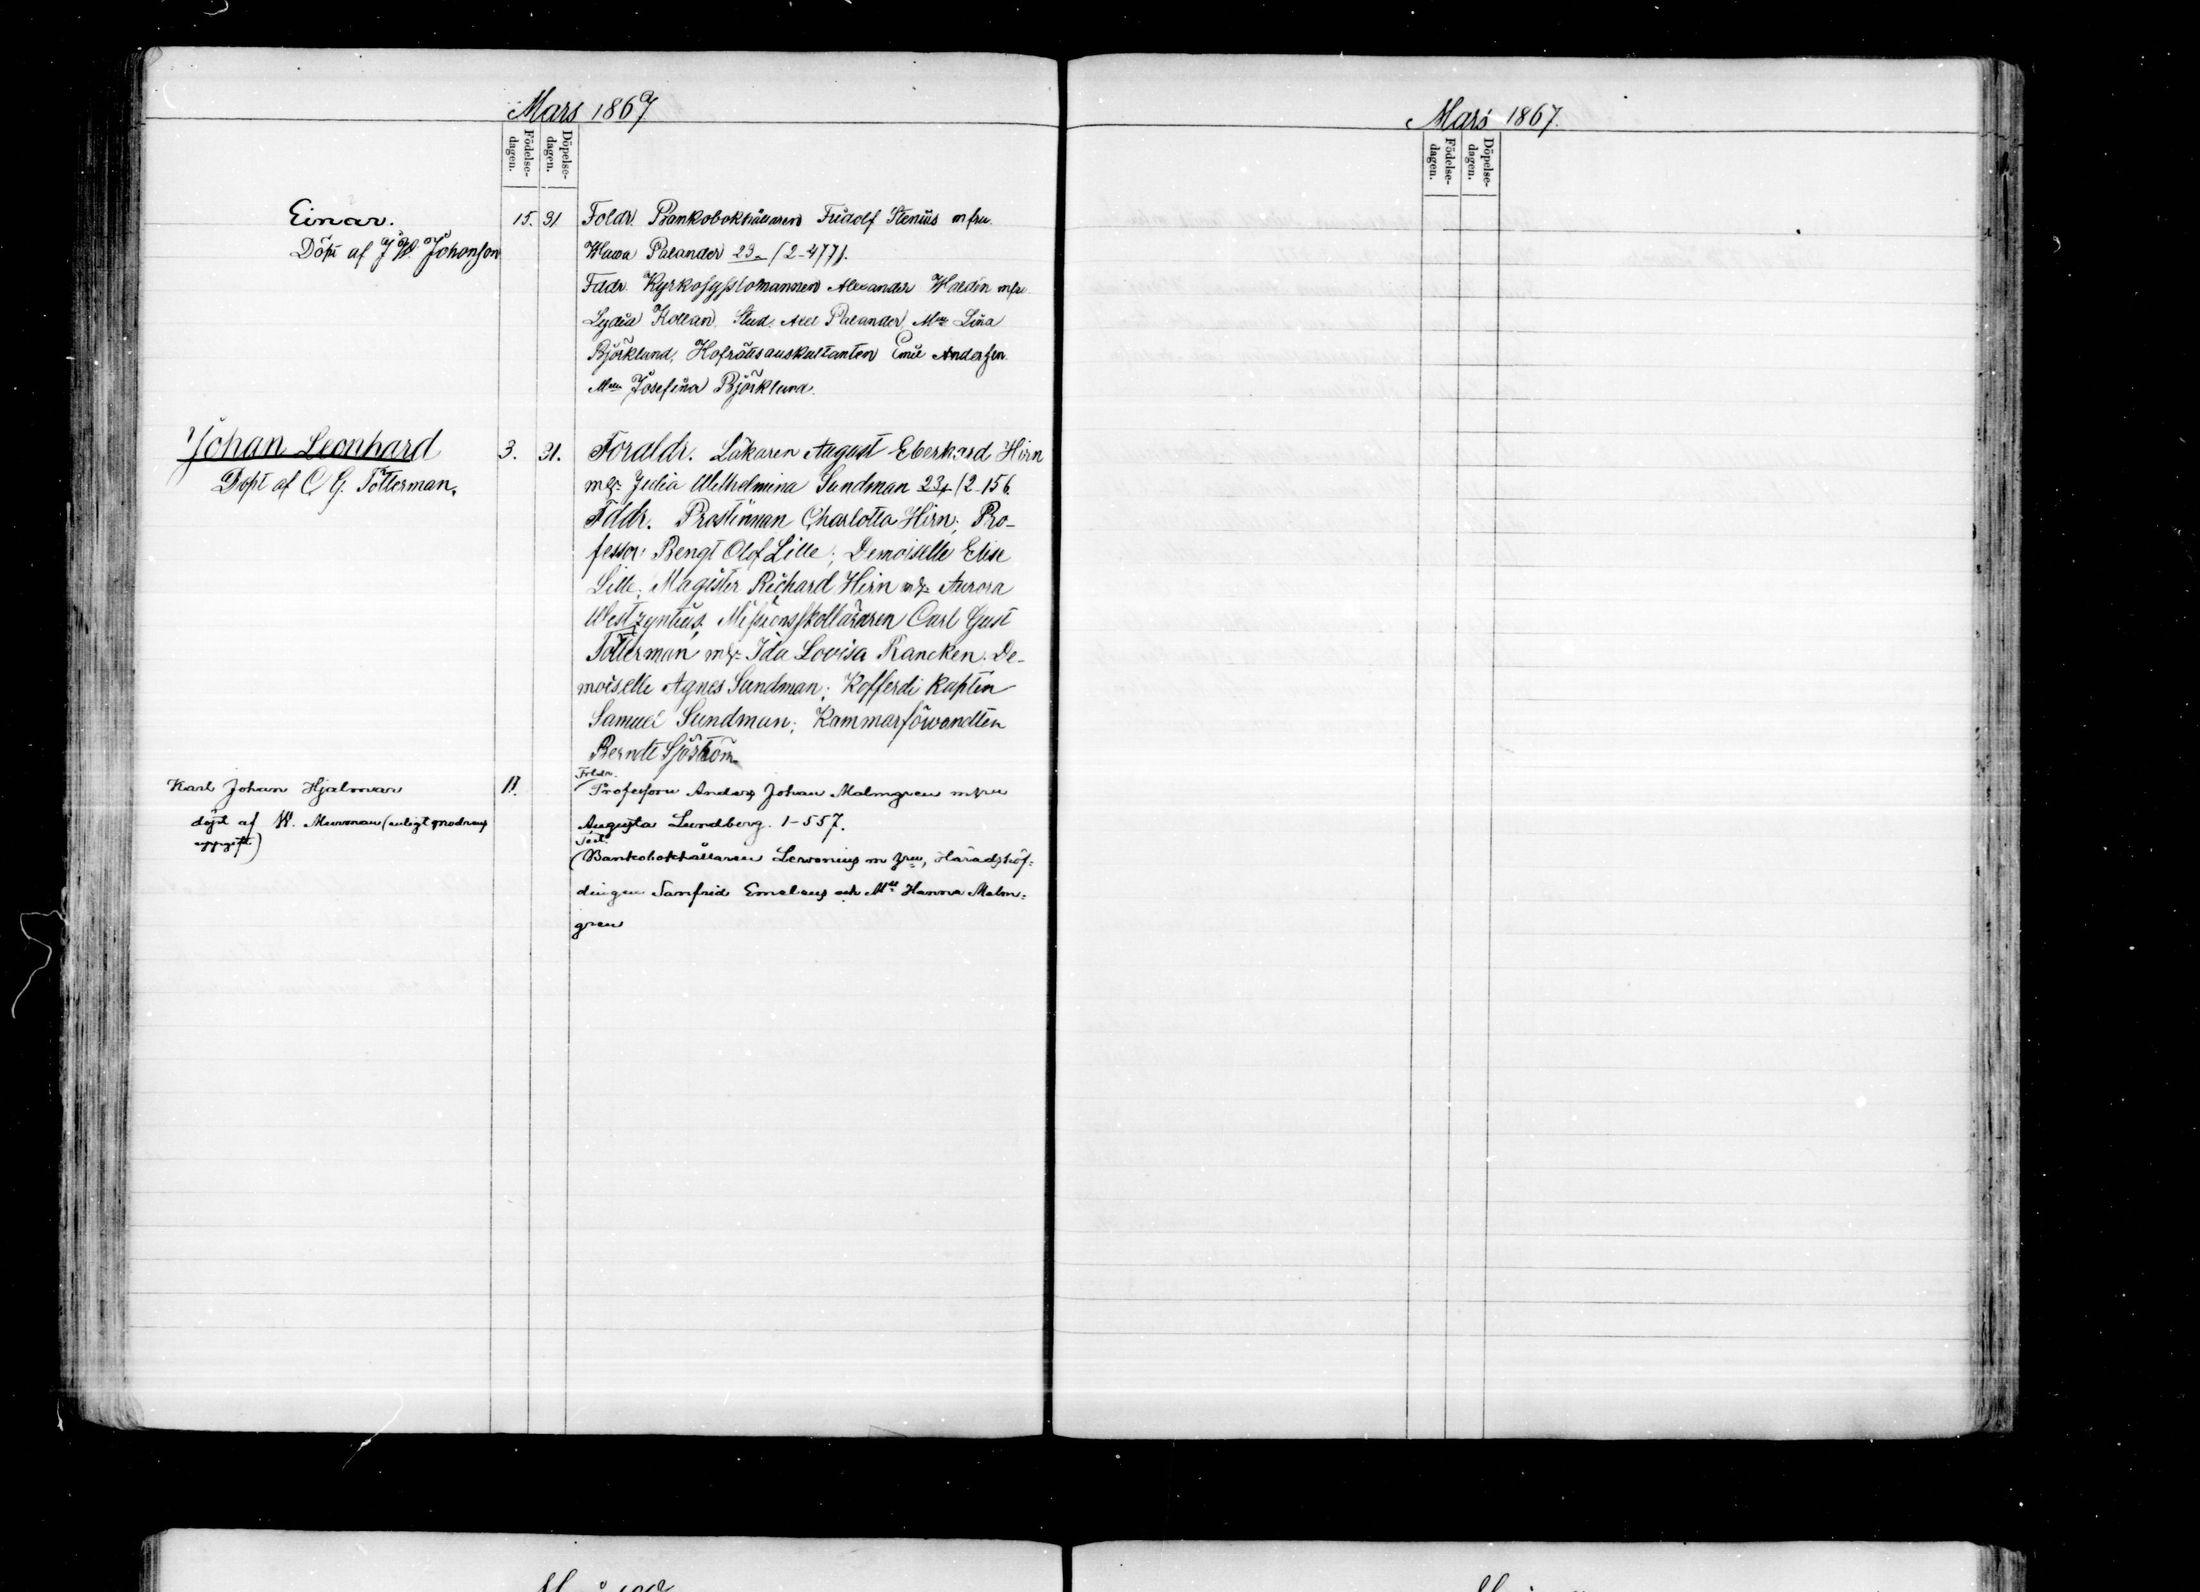 Mars 1867
Födelse-
dagen.
Döpelse-
dagen.
Einar.
Döpt af J W. Johonson
15. 31
Foldr. Bankobokhållaren Fridolf Stenius m fru
Palander 23 (2-477).
Fddr. Alexander Waldin m fru
Kollan, Stud. Axel Palander, Mlle Lina
Björklund, Hofrättsauskultanten Emil Andersen
Mlle Josefina Björklund.
Johan Leonhard
Döpt af C G. Tötterman.
3. 31.
Föraldr. Läkaren August Eberhard Hirn
m h Julia Wilhelmina Sundman 23 (2-156
Fddr. Prostinnan Charlotta Hirn; Pro-
fessor Bengt Olof Lille; Demoiselle Elise
Lille; Magister Richard Hirn m h Aurora
Westzyntius; Missionsskolläraren Carl Gust
Tötterman m h Ida Lovisa Rancken. De-
moiselle Agnes Sundman; Kofferdi Kapten
Samuel Sundman; Kammarförvandten
Berndt Sjöström
Karl Johan Hjalmar
döpt af W. Murman (enligt modrens
uppgift)
11.
Frldr.
Professorn Anders Johan Malmgren m fru
Augusta Lundberg. 1-557.
Test.
(Bankobokhållaren Leronius m fru, Häradshöf-
dingen Sanfrid Emeleus och Mll Hanna Malm-
gren
Mars 1867.
Födelse-
dagen.
Döpelse-
dagen.